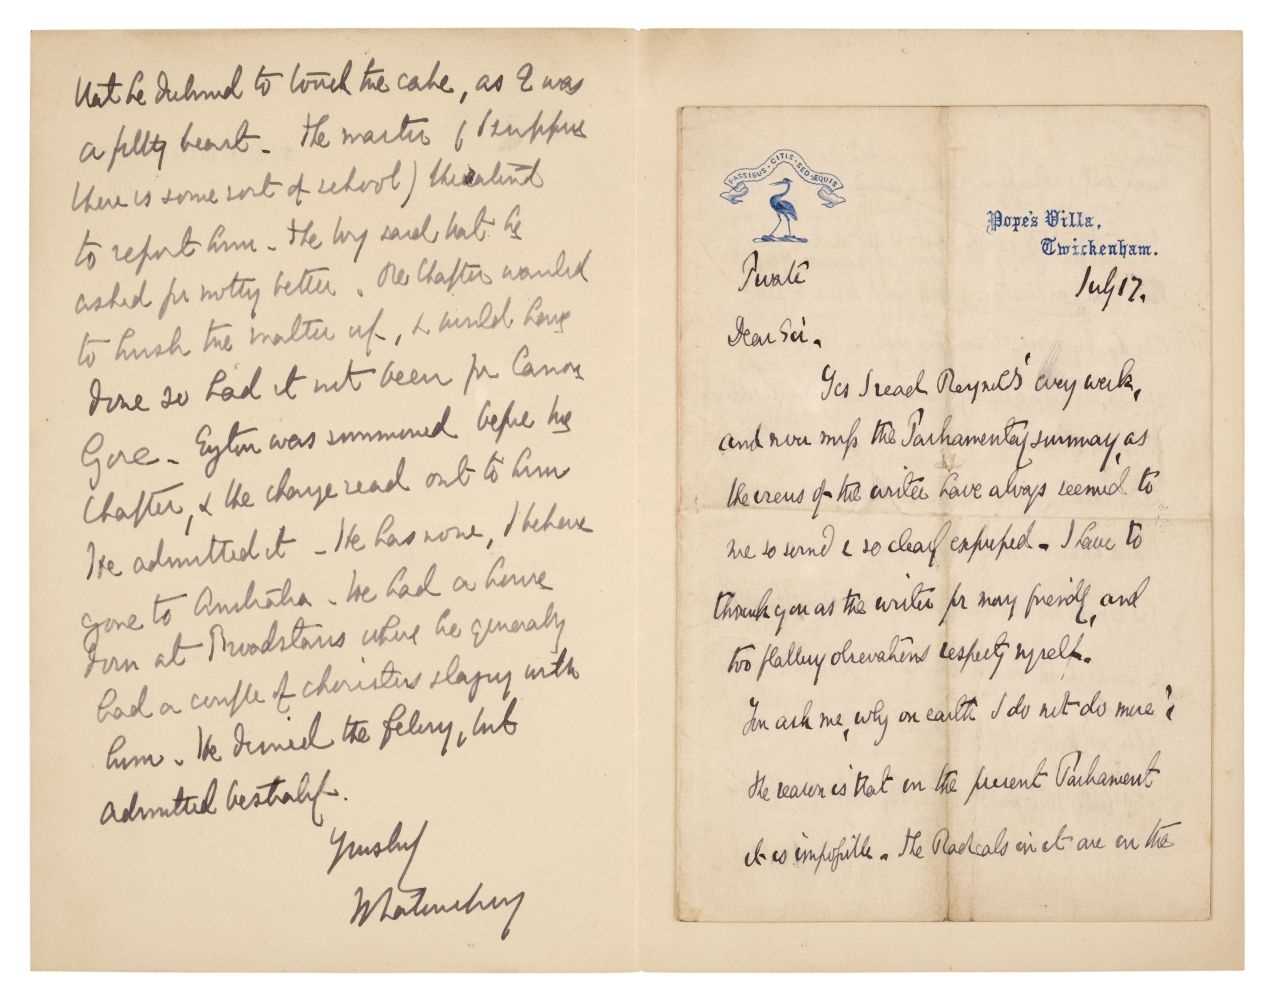 that he declined to touch the cake, as I was
a filthy beast. The master (I suppose
there is some sort of school) threatened
to report him. The boy said that he
asked for nothing better. The Chapter wanted
to hush the matter up, & would have
done so had it not been for Canon
Gore. Eyton was summoned before his
Chapter, & the charge read out to him
He admitted it. He has now, I believe
gone to Australia. He had a house
down at Broadstairs where he generally
had a couple of choristers staying with
him. He denied the felony, but
admitted bestiality.
Yours truly
H Labouchere
PASSIBUS · CITIS · SED · ÆQUIS
Pope's Villa,
Twickenham.
Private
July 17.
Dear Sir.
Yes I read Reynolds' every week,
and never miss the Parliamentary summary, as
the views of the writer have always seemed to
me so sound & so clearly expressed. I have to
thank you as the writer for many friendly, and
too flattery observations respecting myself.
You ask me, why on earth I do not do more?
The reason is that in the present Parliament
it is impossible. The Radicals in it are on the